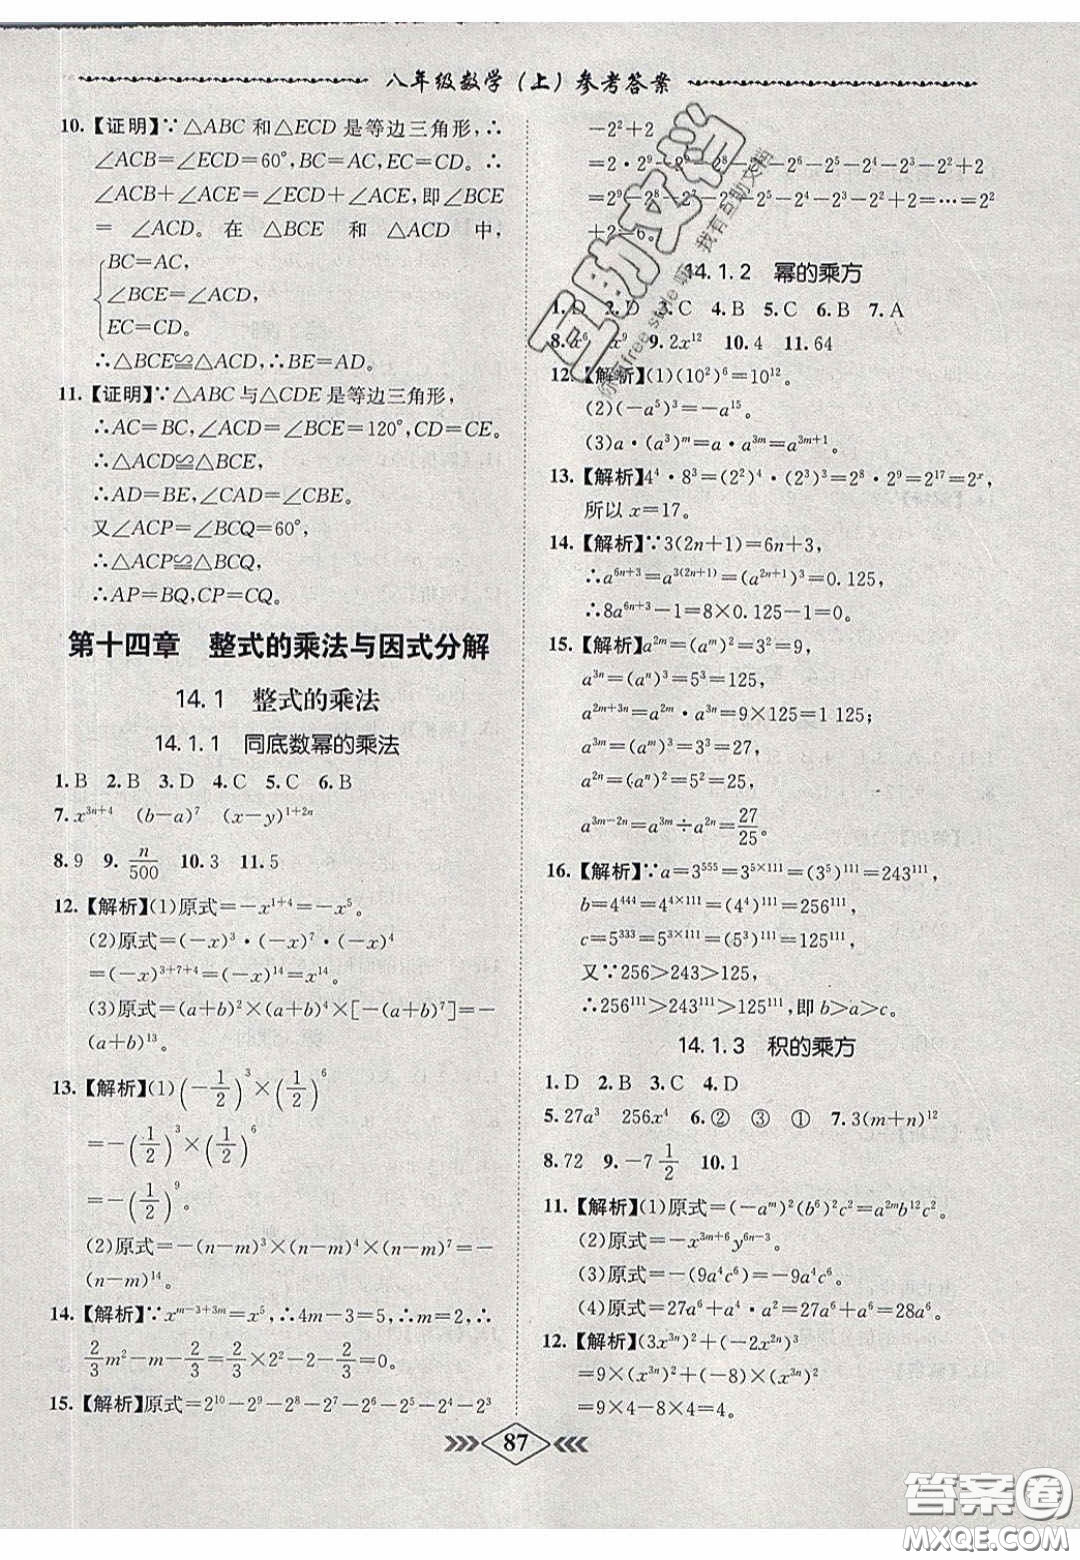 八年级数学(上)参考答案
10.【证明】∵△ABC 和△ECD 是等边三角形,∴
∠ACB=∠ECD=60°,BC=AC,EC=CD。∴
∠ACB+∠ACE=∠ECD+∠ACE,即∠BCE
=∠ACD。在△BCE 和△ACD 中,
BC=AC,
∠BCE=∠ACD,
EC=CD。
∴△BCE≌△ACD,∴BE=AD。
11.【证明】∵△ABC与△CDE是等边三角形,
∴AC=BC,∠ACD=∠BCE=120°,CD=CE。
∴△ACD≌△BCE,
∴AD=BE,∠CAD=∠CBE。
又∠ACP=∠BCQ=60°,
∴△ACP≌△BCQ,
∴AP=BQ,CP=CQ。
第十四章 整式的乘法与因式分解
14.1 整式的乘法
14.1.1 同底数幂的乘法
1.B 2.B 3.D 4.C 5.C 6.B
7.x³ⁿ⁺⁴ (b−a)⁷ (x−y)¹⁺²ⁿ
8.9 9.n/500 10.3 11.5
12.【解析】(1)原式=−x¹⁺⁴=−x⁵。
(2)原式=(−x)³·(−x)⁷·(−x)⁴
=(−x)³⁺⁷⁺⁴=(−x)¹⁴=x¹⁴。
(3)原式=(a+b)²×(a+b)⁴×[−(a+b)⁷]=−
(a+b)¹³。
13.【解析】(1)(−1/2)³×(1/2)⁶
=−(1/2)³×(1/2)⁶
=−(1/2)⁹。
(2)原式=−(n−m)³×(n−m)⁴×(n−m)⁷=−
(n−m)¹⁴。
14.【解析】∵x^(m−3+3m)=x⁵,∴4m−3=5,∴m=2,∴
2/3m²−m−2/3=2/3×2²−2−2/3=0。
15.【解析】原式=2¹⁰−2⁹−2⁸−2⁷−2⁶−2⁵−2⁴−2³
−2²+2
=2·2⁹−2⁹−2⁸−2⁷−2⁶−2⁵−2⁴−2³−2²+2
=2⁹−2⁸−2⁷−2⁶−2⁵−2⁴−2³−2²+2=…=2²
+2=6。
14.1.2 幂的乘方
1.D 2.D 3.C 4.B 5.C 6.B 7.A
8.x⁶ x⁹ 9.2x¹² 10.4 11.64
12.【解析】(1)(10²)⁶=10¹²。
(2)(−a⁵)³=−a¹⁵。
(3)a·(a³)ᵐ=a·a³ᵐ=a³ᵐ⁺¹。
13.【解析】4⁴·8³=(2²)⁴·(2³)³=2⁸·2⁹=2¹⁷=2ˣ,
所以x=17。
14.【解析】∵3(2n+1)=6n+3,
∴a⁶ⁿ⁺³=a³⁽²ⁿ⁺¹⁾=(a²ⁿ⁺¹)³=0.125,
∴8a⁶ⁿ⁺³−1=8×0.125−1=0。
15.【解析】a²ᵐ=(aᵐ)²=3²=9,
a³ⁿ=(aⁿ)³=5³=125,
a²ᵐ⁺³ⁿ=a²ᵐ·a³ⁿ=9×125=1 125,
a³ᵐ=(aᵐ)³=3³=27,
a²ⁿ=(aⁿ)²=5²=25,
a³ᵐ⁻²ⁿ=a³ᵐ÷a²ⁿ=27/25。
16.【解析】∵a=3⁵⁵⁵=3⁵ˣ¹¹¹=(3⁵)¹¹¹=243¹¹¹,
b=4⁴⁴⁴=4⁴ˣ¹¹¹=(4⁴)¹¹¹=256¹¹¹,
c=5³³³=5³ˣ¹¹¹=(5³)¹¹¹=125¹¹¹,
又∵256>243>125,
∴256¹¹¹>243¹¹¹>125¹¹¹,即b>a>c。
14.1.3 积的乘方
1.D 2.B 3.C 4.D
5.27a³ 256x⁴ 6.② ③ ① 7.3(m+n)¹²
8.72 9.−7 1/2 10.1
11.【解析】(1)原式=(−aᵐ)²(b⁶)²c²=a²ᵐb¹²c²。
(2)原式=−x³ᵐ⁺⁶y⁶ⁿ⁻³。
(3)原式=−(9a⁴c⁶)=−9a⁴c⁶。
(4)原式=27a⁶+a⁴·a²=27a⁶+a⁶=28a⁶。
12.【解析】(3x³ⁿ)²+(−2x²ⁿ)³
=9×(x³ⁿ)²+(−8)×(x³ⁿ)²
=9×4−8×4=4。
87
互助文档
我有互助文档
答案圈
MXQE.COM